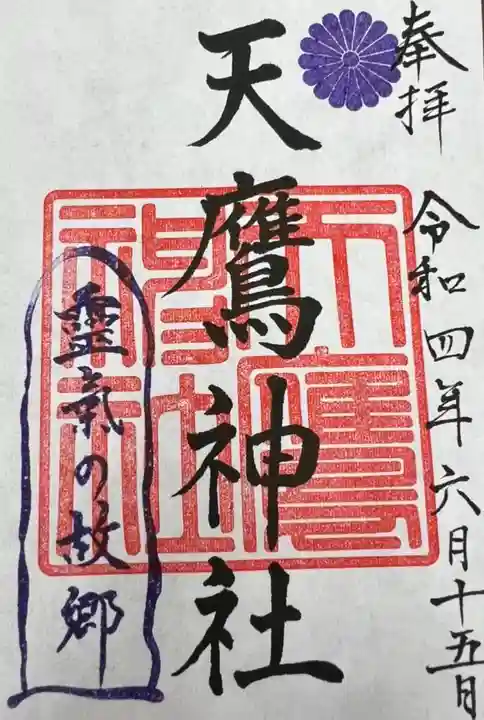 奉拝
令和四年六月十五日
天鷹神社
天鷹神社
靈氣の故郷